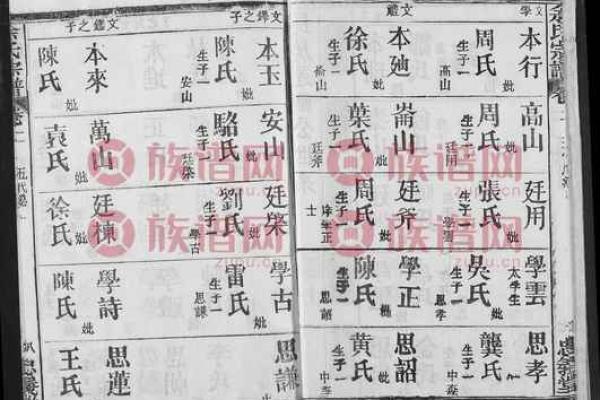 余氏宗譜
文學
本行
妣
周氏
生子一
高山
高山
妣
周氏
生子一
廷用
廷用
妣
張氏
生子一
學雲
太學生
妣
吳氏
生子一
思孝
思孝
妣
龔氏
生子一
中孝
文
本廸
妣
徐氏
生子一
崙山
崙山
妣
葉氏
生子一
廷斧
廷斧
妣
周氏
生子一
學正
妣
陳氏
生子一
思詔
思詔
妣
黃氏
生子一
中
文鐸之子
本玉
妣
陳氏
生子一
安山
安山
妣
駱氏
生子一
廷榮
廷榮
妣
劉氏
生子一
學古
學古
妣
雷氏
生子一
思謙
思謙
文鑑之子
本來
妣
陳氏
萬山
妣
袁氏
廷棟
妣
徐氏
學詩
妣
陳氏
思蓮
王氏
余氏宗譜
族谱网
zupu.cn
族谱网
zupu.cn
族谱网
zupu.cn
族谱网
zupu.cn